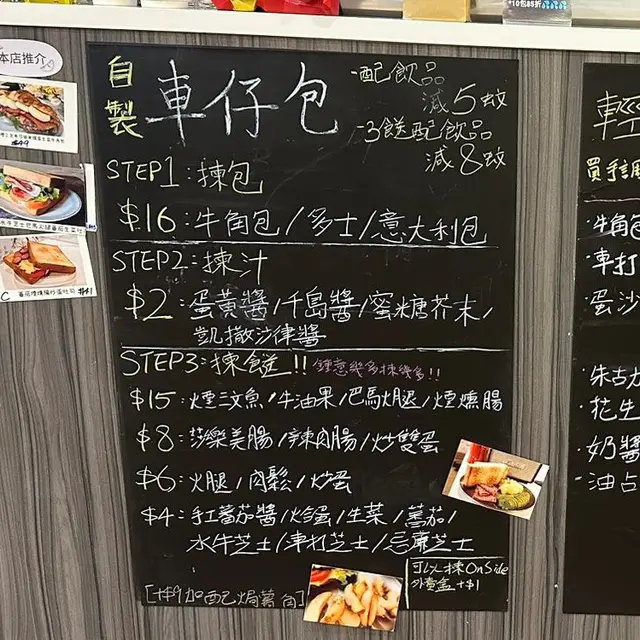 +10包85折
本店推介
自製 車仔包
-配飲品
減5蚊
-3餸配飲品
減8蚊
STEP1:揀包
$16:牛角包/多士/意大利包
STEP2:揀汁
$2:蛋黃醬/千島醬/蜜糖芥末/
凱撒沙律醬
STEP3:揀餸!! 鍾意幾多揀幾多!!
$15:煙三文魚/牛油果/巴馬火腿/煙燻腸
$8:莎樂美腸/辣肉腸/炒雙蛋
$6:火腿/肉鬆/炒蛋
$4:手工蕃茄醬/烚蛋/生菜/蕃茄/
水牛芝士/車打芝士/忌廉芝士
[+$9加配焗薯角]
可以揀OnSide
外賣盒+$1
$49
$41
輕
牛角
車打
蛋沙
朱古力
花生
奶醬
油占